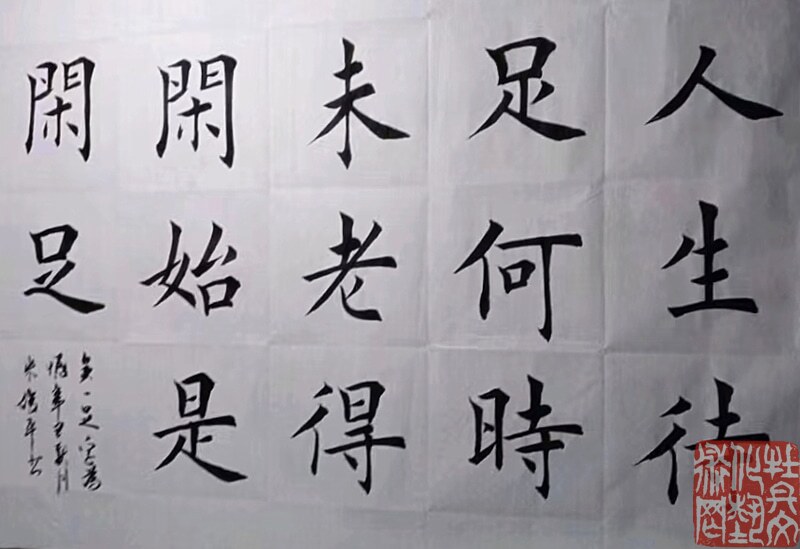 人生待
足何時
未老得
閑始是
閑足